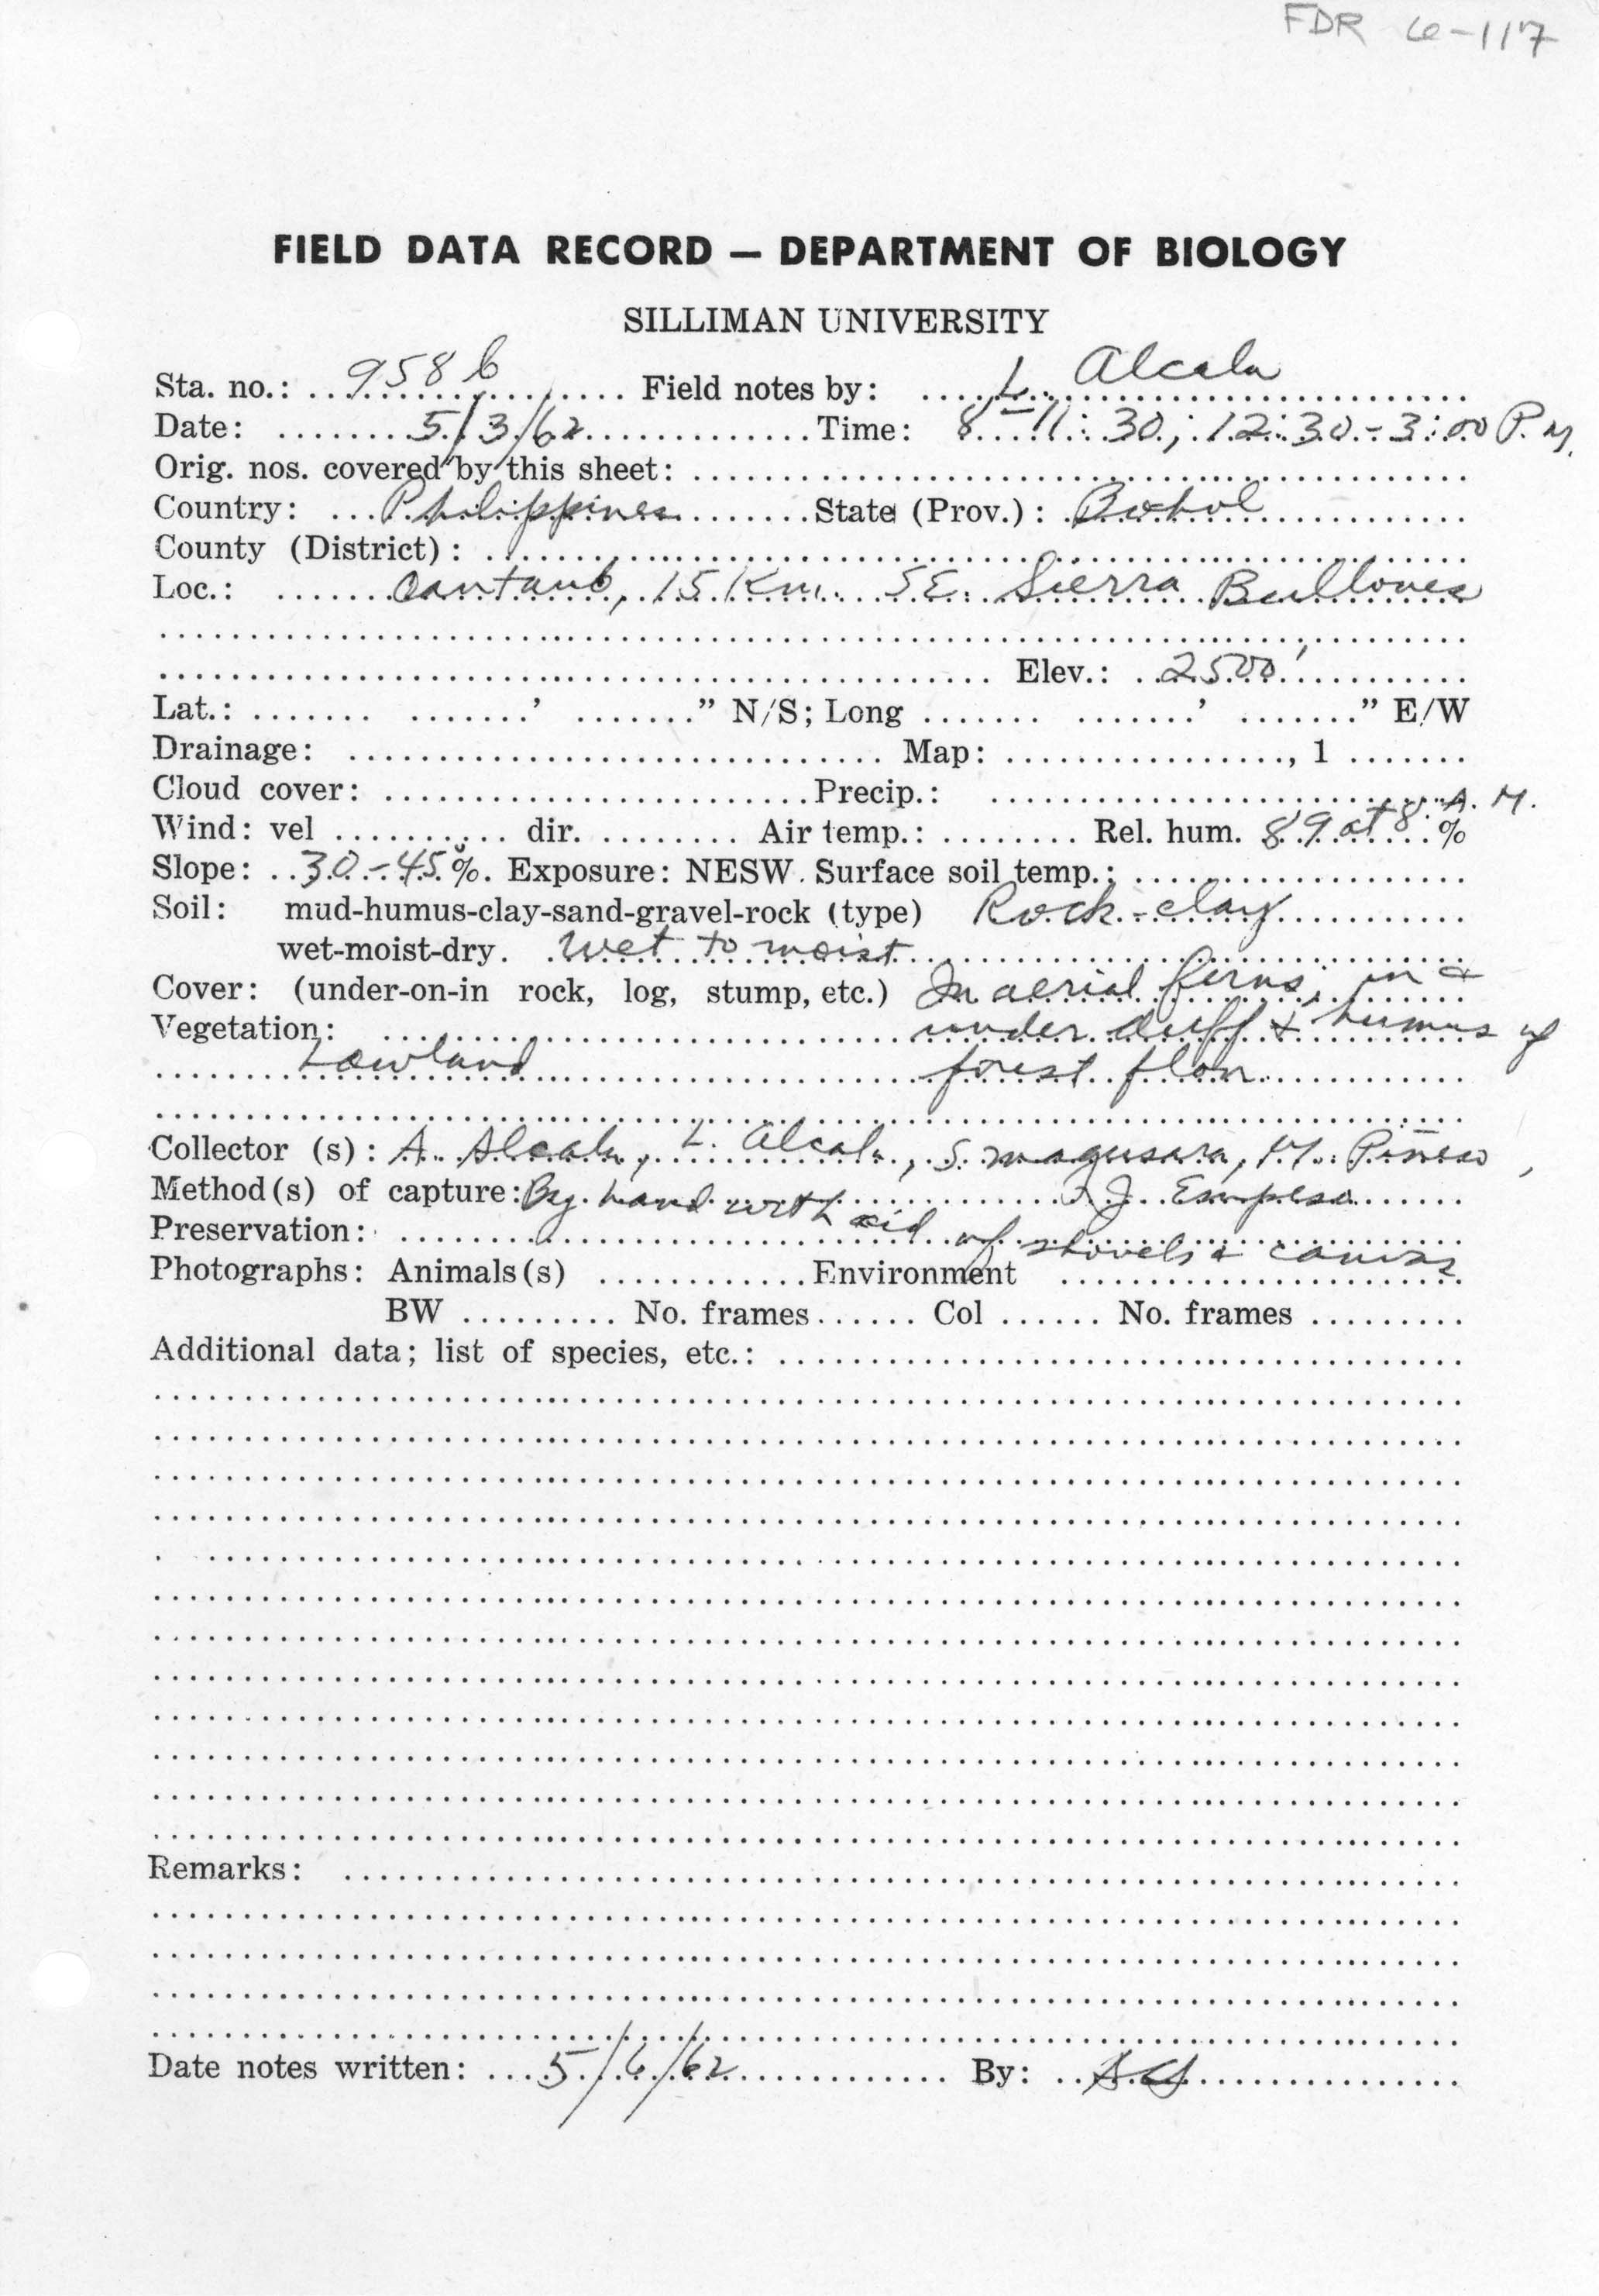 FDR 6-117
FIELD DATA RECORD — DEPARTMENT OF BIOLOGY
SILLIMAN UNIVERSITY
Sta. no.: 958 b Field notes by: L. Alcala
Date: 5/3/62 Time: 8-11:30; 12:30-3:00 P.M.
Orig. nos. covered by this sheet:
Country: Philippines State (Prov.): Bohol
County (District):
Loc.: Cantaub, 15 Km. SE. Sierra Bullones
Elev.: 2500'
Lat.: ' " N/S; Long ' " E/W
Drainage: Map: , 1
Cloud cover: Precip.:
Wind: vel dir. Air temp.: Rel. hum. 89 at 8 A.M. %
Slope: 30-45%. Exposure: NESW. Surface soil temp.:
Soil: mud-humus-clay-sand-gravel-rock (type) Rock-clay
wet-moist-dry. wet to moist
Cover: (under-on-in rock, log, stump, etc.) In aerial ferns; in &
Vegetation: under duff & humus of
Lowland forest floor
Collector (s): A. Alcala, L. Alcala, S. Magusara, M. Pinero,
Method(s) of capture: By hand with aid of shovels & canvas J. Empeso
Preservation:
Photographs: Animals(s) Environment
BW No. frames Col No. frames
Additional data; list of species, etc.:
Remarks:
Date notes written: 5/6/62 By: